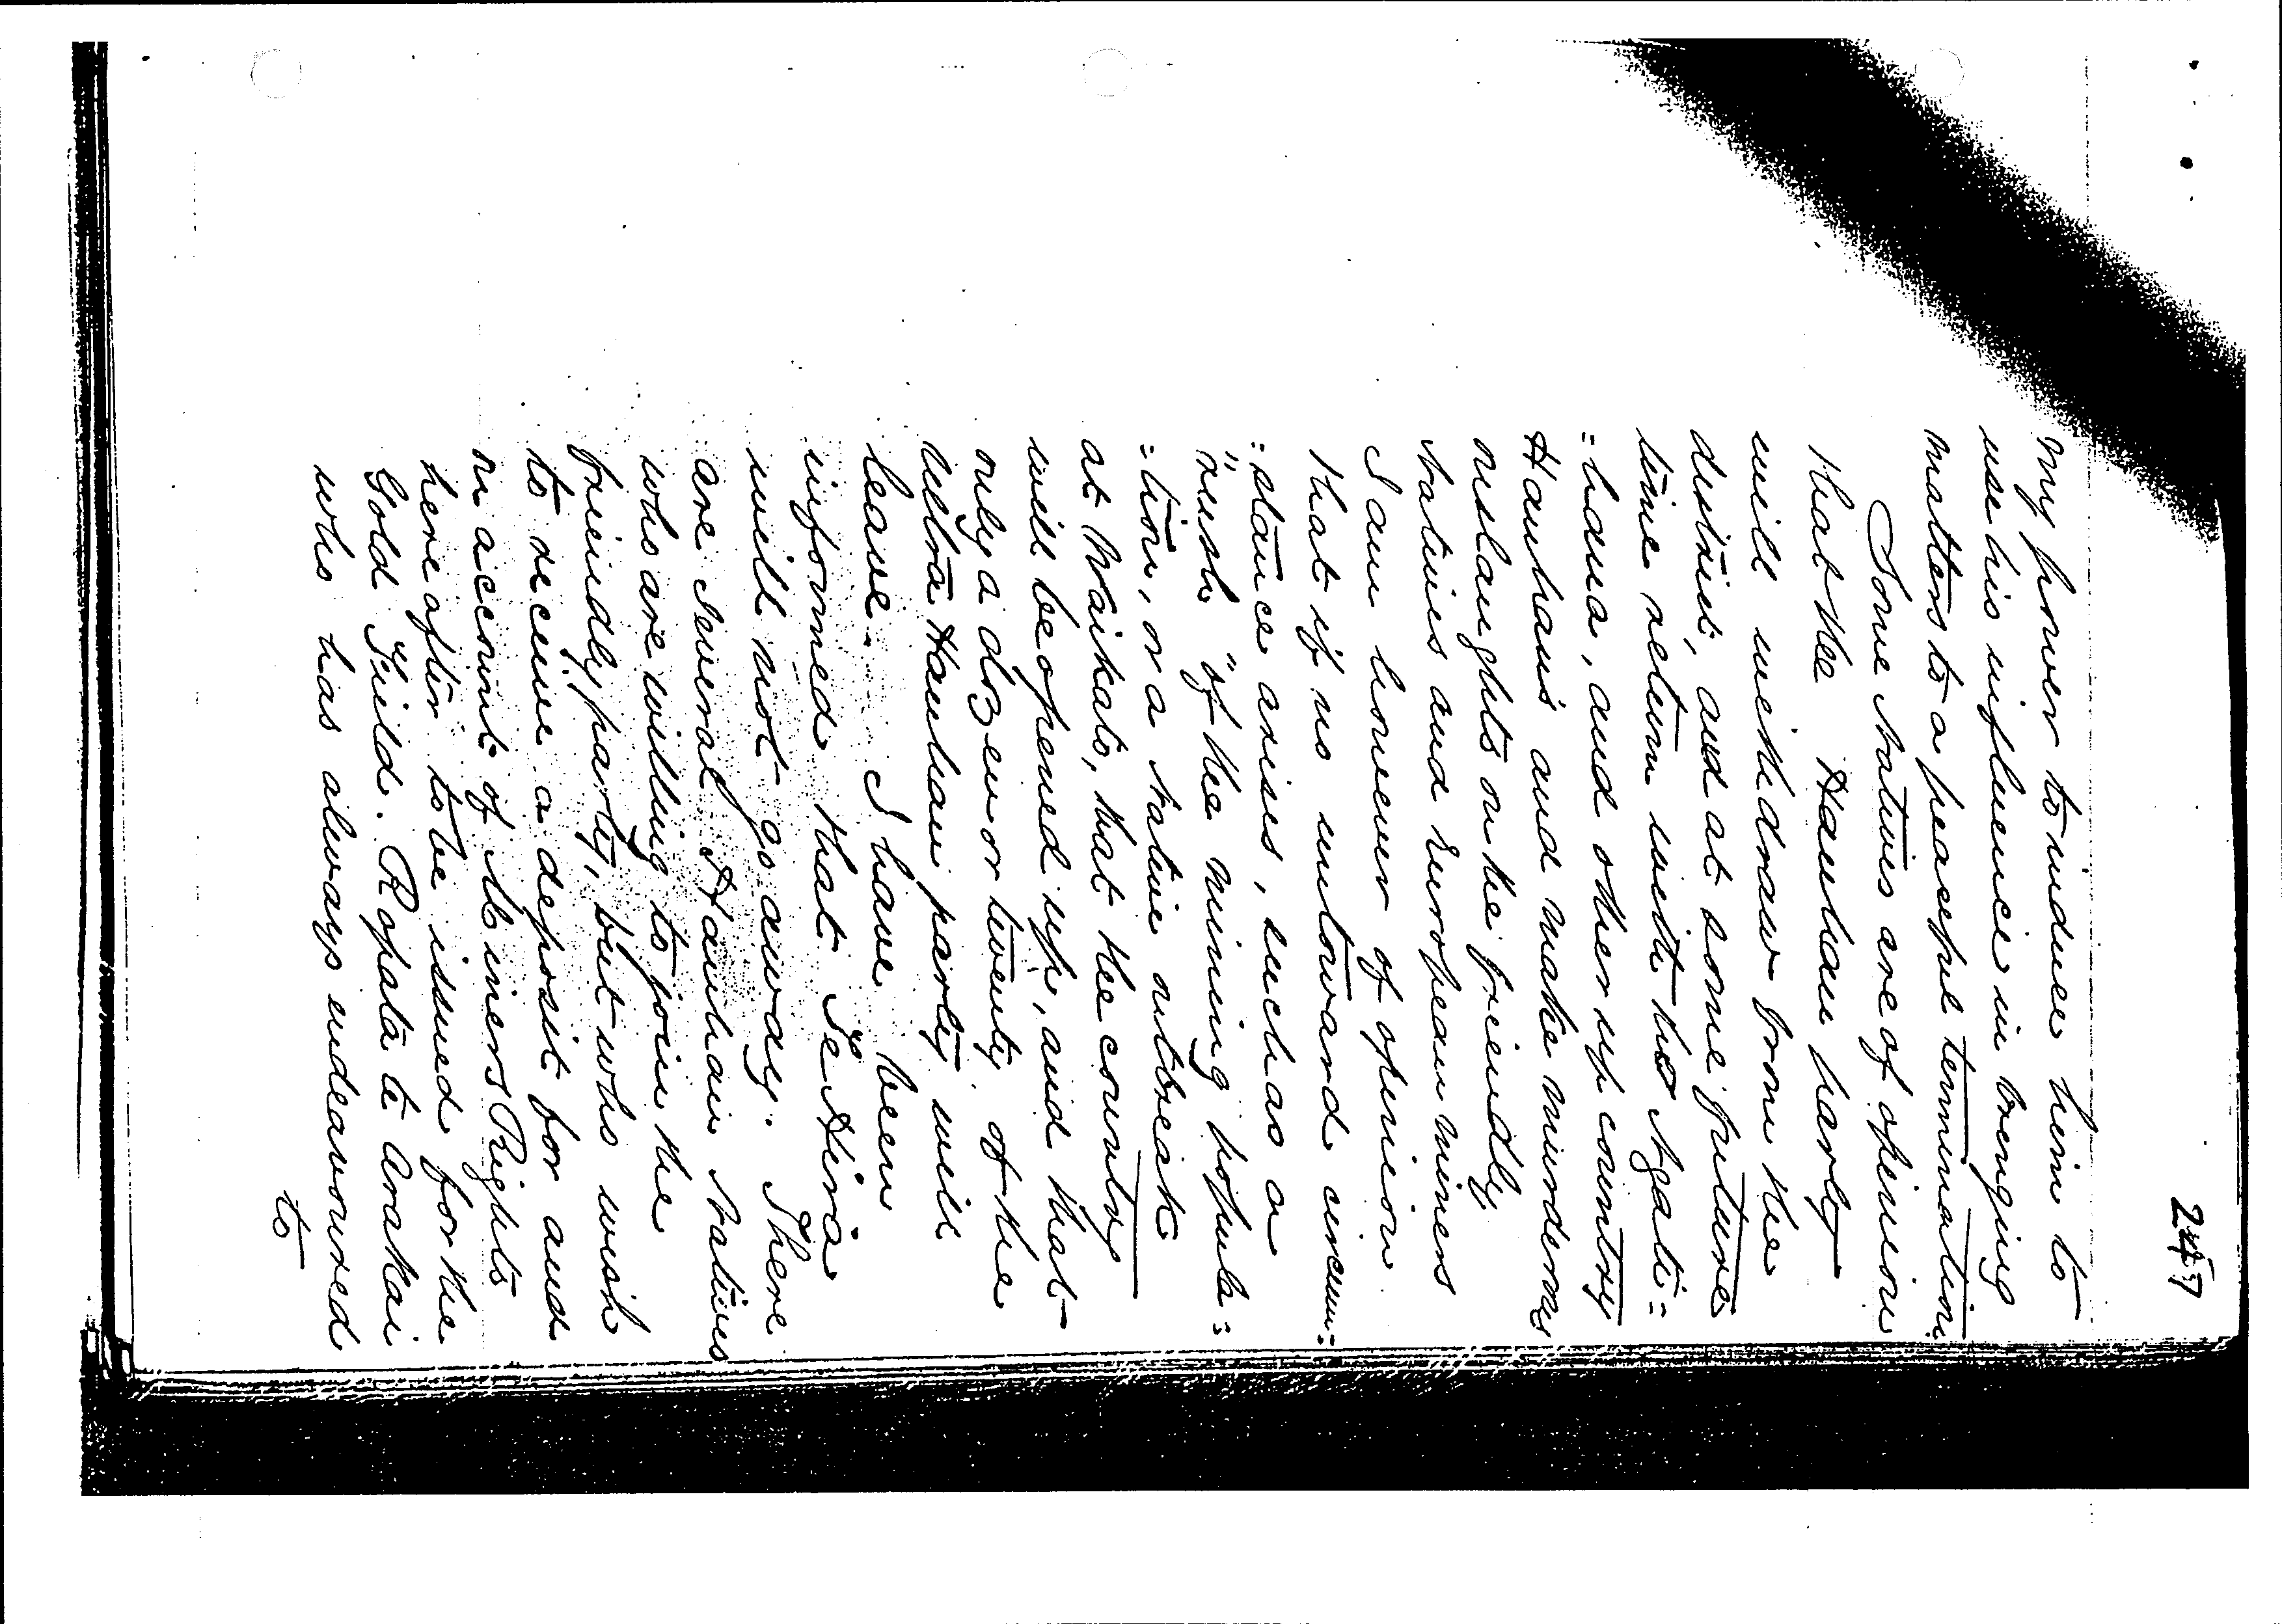 247
my power to induce him to
use his influence in bringing
matters to a peaceful termination.
Some Natives are of opinion
that the Hauhau party
will withdraw from the
district, and at some future
time return with the Ngati=
=haua, and other up country
Hauhaus and make murderous
onslaughts on the friendly
Natives and European miners
I am however of opinion
that if no untoward circum=
=stance arises, such as a
"rush" of the mining popula=
=tion, or a Native outbreak
at Waikato, that the country
will be opened up, and that
only a dozen or twenty of the
ultra Hauhau party will
leave. I have been
informed that Te Hira
will not go away. There
are several Hauhau Natives
who are willing to join the
friendly party, but who wish
to receive a deposit for and
on account of Miners Rights
hereafter to be issued for the
Gold Field. Ropata te Arakai
who has always endeavoured
to